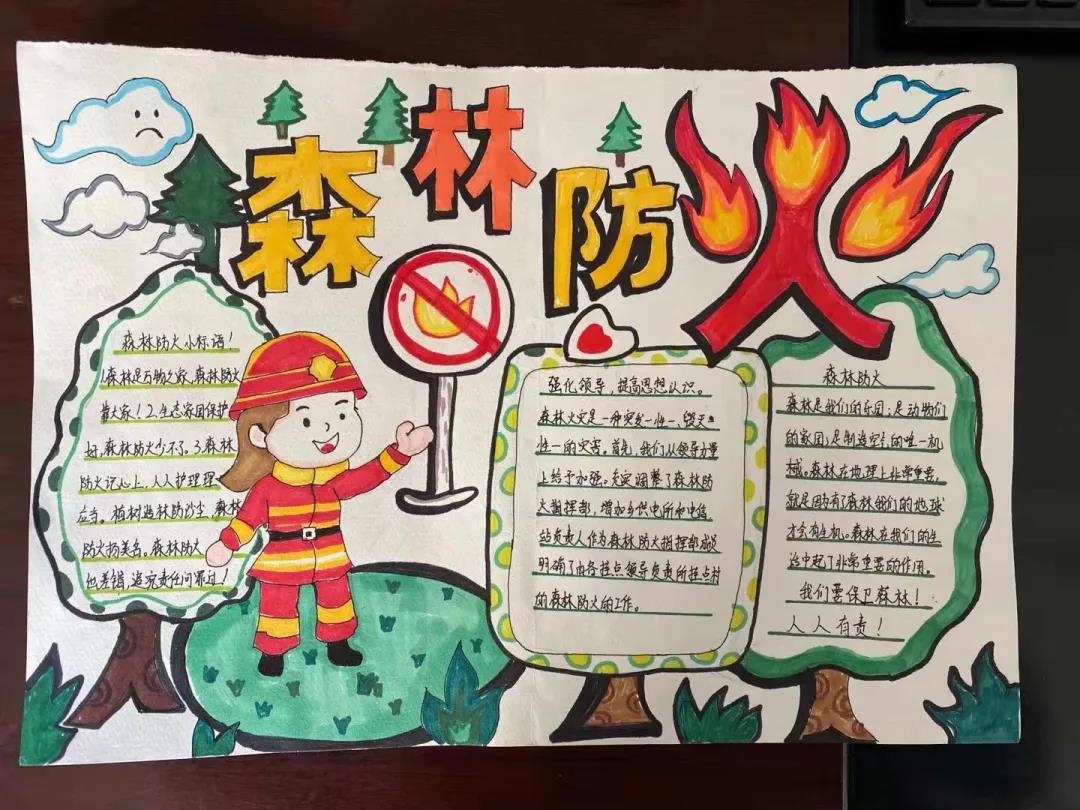 森林防火
森林防火小标语！
1.森林是万物之家,森林防火
靠大家！2.生态家园保护
好,森林防火少不了。3.森林
防火记心上,人人护理理
应当。植树造林防沙尘,森林
防火扬美名。森林防火
出差错,追究责任问罪过！
强化领导,提高思想认识。
森林火灾是一种突发一性一、毁灭
性一的灾害。首先,我们从领导力量
上给予加强。充实调整了森林防
火指挥部,增加乡供电所和电信
站负责人作为森林防火指挥部成员
明确了由各挂点领导负责所挂点村
的森林防火的工作。
森林防火
森林是我们的乐园；是动物们
的家园,是制造空气的唯一机
械。森林在地理上非常重要,
就是因为有了森林我们的地球
才会有生机。森林在我们的生
活中起了非常重要的作用。
我们要保卫森林！
人人有责！